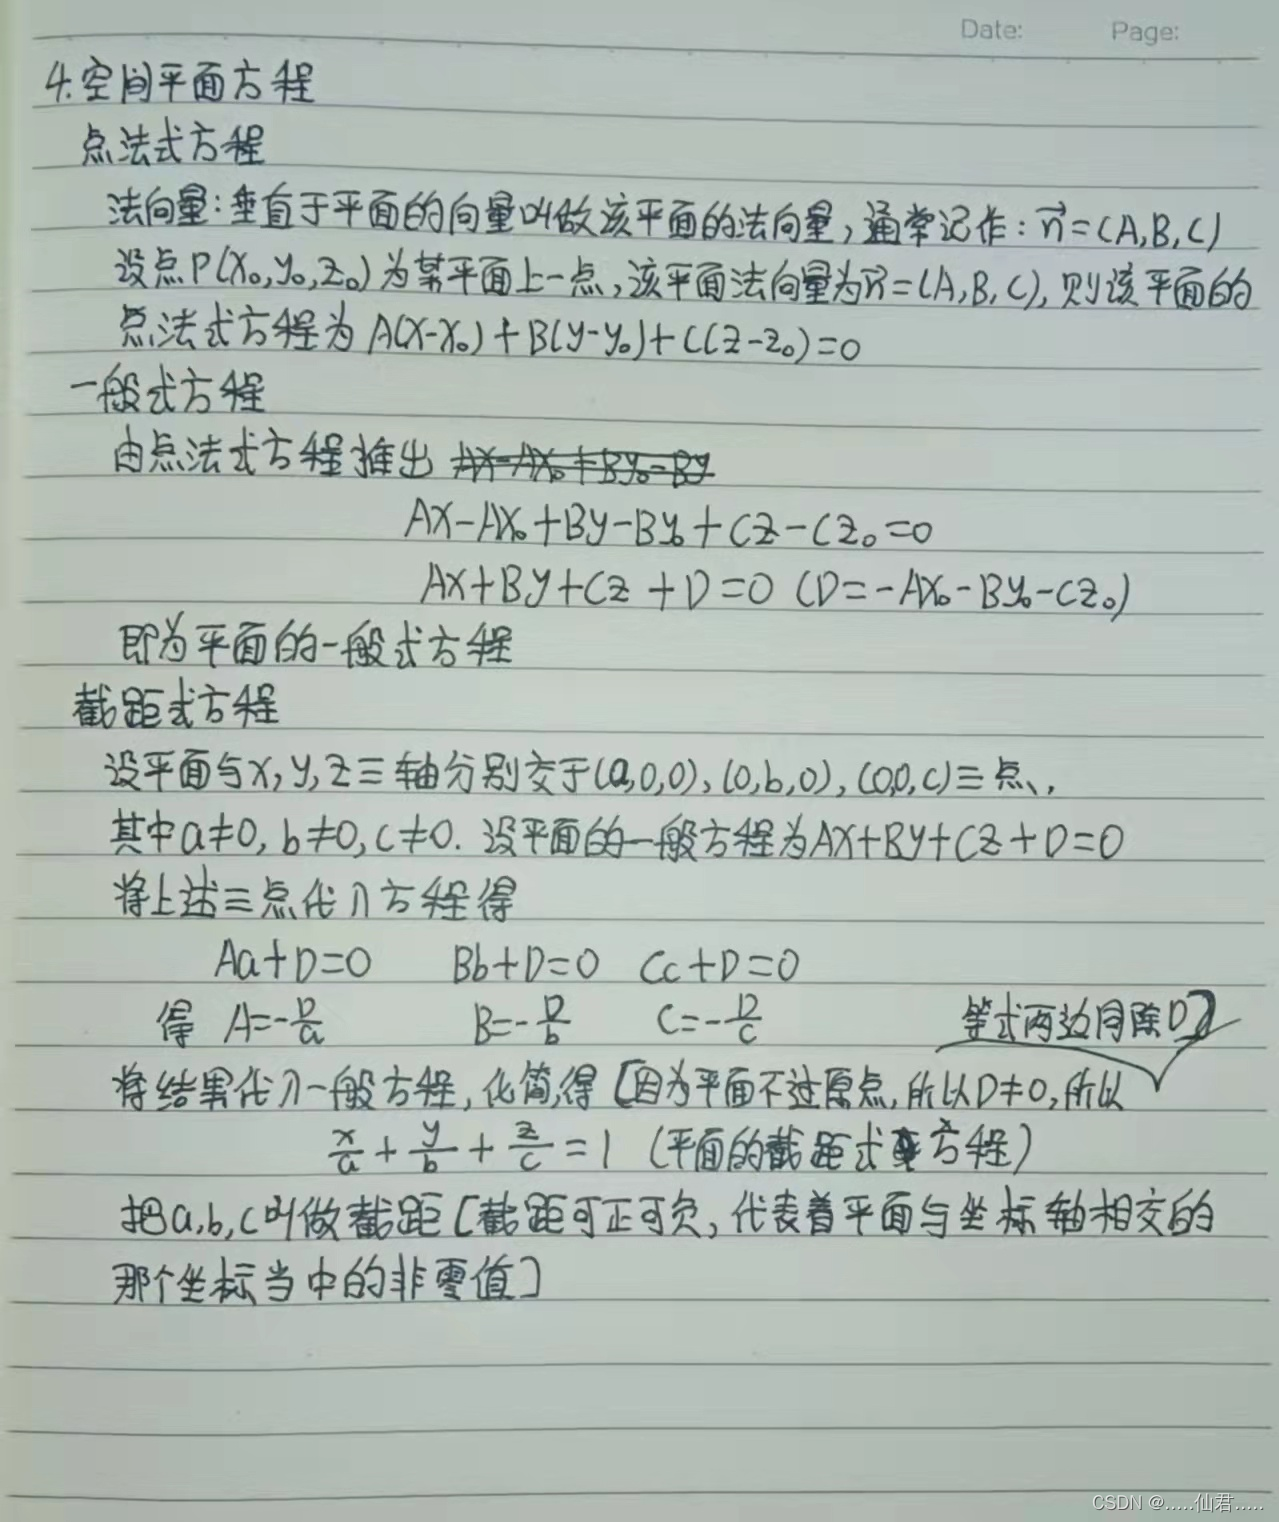 Date: Page:
4.空间平面方程
点法式方程
法向量:垂直于平面的向量叫做该平面的法向量,通常记作:n⃗=(A,B,C)
设点P(x₀,y₀,z₀)为某平面上一点,该平面法向量为n⃗=(A,B,C),则该平面的
点法式方程为A(x-x₀)+B(y-y₀)+C(z-z₀)=0
一般式方程
由点法式方程推出 Ax-Ax₀+By₀-By
Ax-Ax₀+By-By₀+Cz-Cz₀=0
Ax+By+Cz+D=0 (D=-Ax₀-By₀-Cz₀)
即为平面的一般式方程
截距式方程
设平面与x,y,z三轴分别交于(a,0,0),(0,b,0),(0,0,c)三点,
其中a≠0,b≠0,c≠0.设平面的一般方程为Ax+By+Cz+D=0
将上述三点代入方程得
Aa+D=0 Bb+D=0 Cc+D=0
得 A=-D/a B=-D/b C=-D/c 等式两边同除D]
将结果代入一般方程,化简,得[因为平面不过原点,所以D≠0,所以
x/a+y/b+z/c=1 (平面的截距式方程)
把a,b,c叫做截距[截距可正可负,代表着平面与坐标轴相交的
那个坐标当中的非零值]
CSDN @.....仙君.....